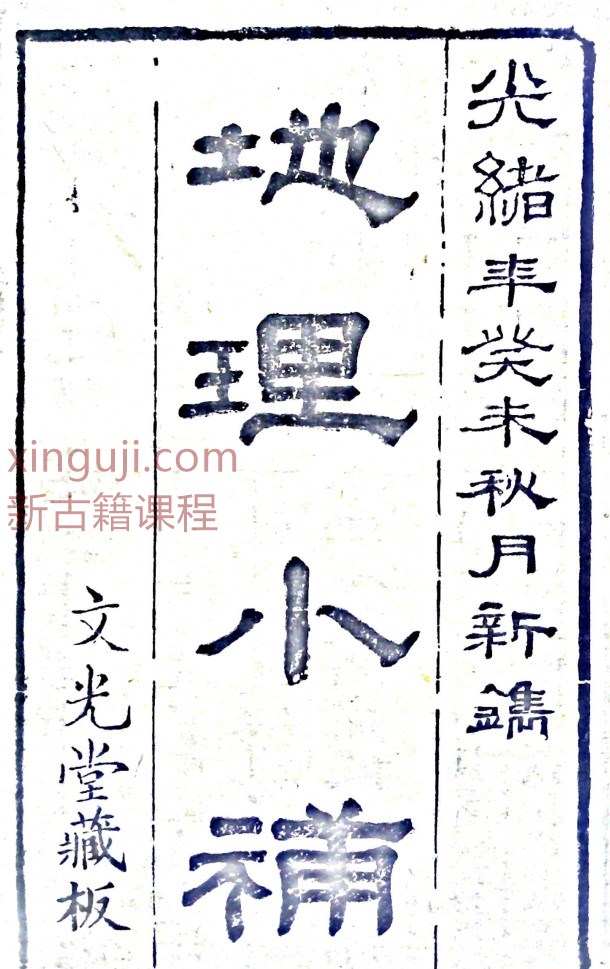 光緒年癸未秋月新鐫
地理小補
文光堂藏板
xinguji.com
新古籍课程